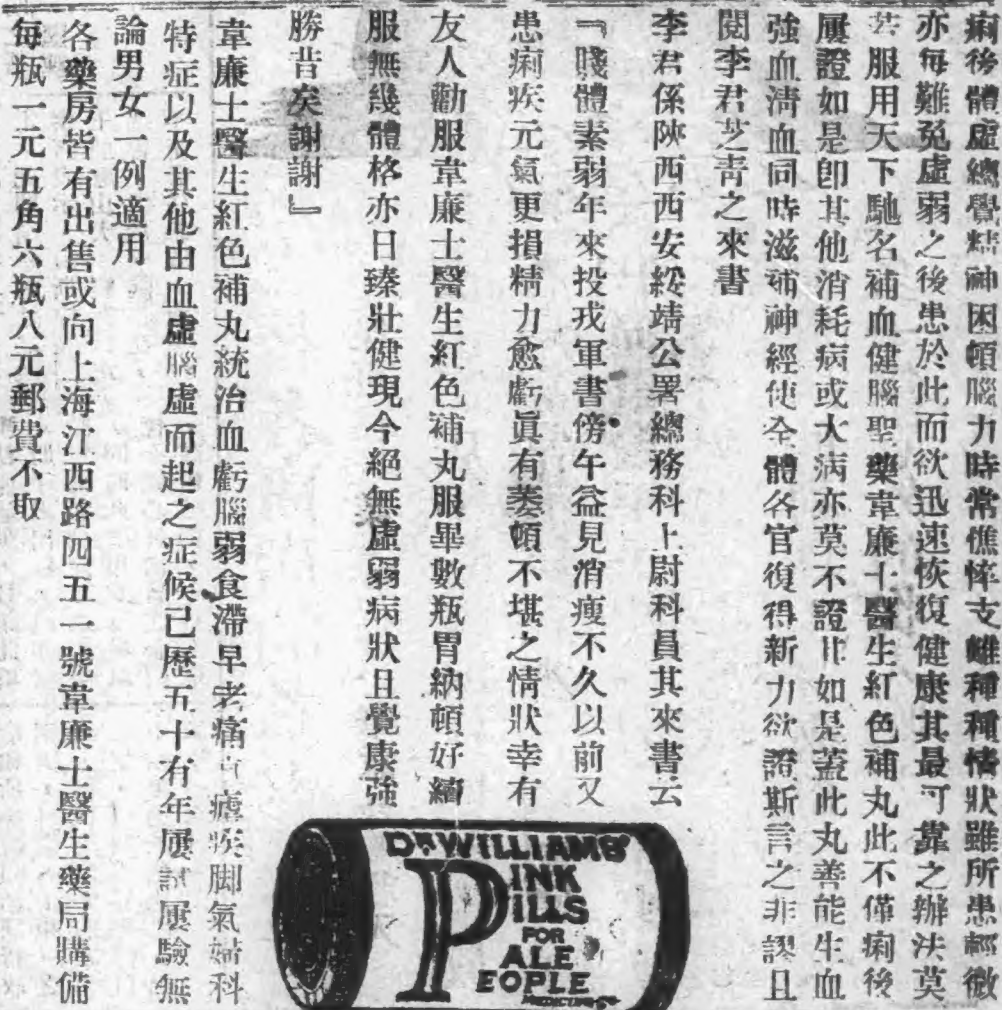 痢後體虛總覺精神困頓腦力時常憔悴支離種種情狀雖所患輕微
亦每難免虛弱之後患於此而欲迅速恢復健康其最可靠之辦法莫
若服用天下馳名補血健腦聖藥韋廉士醫生紅色補丸此不僅痢後
屢證如是卽其他消耗病或大病亦莫不證其如是蓋此丸善能生血
強血淸血同時滋補神經使全體各官復得新力欲證斯言之非謬且
閱李君芝靑之來書
李君係陝西西安綏靖公署總務科上尉科員其來書云
『賤體素弱年來投戎軍書傍午益見消瘦不久以前又
患痢疾元氣更損精力愈虧眞有萎頓不堪之情狀幸有
友人勸服韋廉士醫生紅色補丸服畢數瓶胃納頓好續
服無幾體格亦日臻壯健現今絕無虛弱病狀且覺康強
勝昔矣謝謝』
韋廉士醫生紅色補丸統治血虧腦弱食滯早老痛 瘧疾脚氣婦科
特症以及其他由血虛腦虛而起之症候已歷五十有年屢試屢驗無
論男女一例適用
各藥房皆有出售或向上海江西路四五一號韋廉士醫生藥局購備
每瓶一元五角六瓶八元郵費不取
DR WILLIAMS'
PINK
PILLS
FOR
PALE
PEOPLE
MEDICINE Co